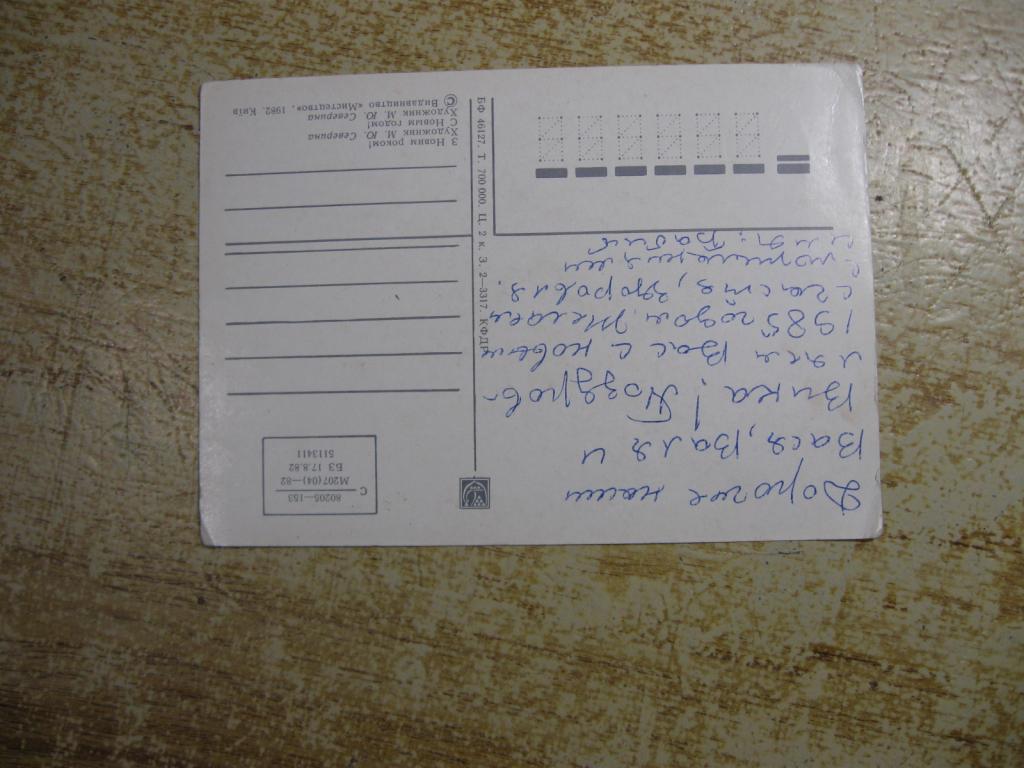 Дорогие наши
Вася, Валя и
Вика! Поздрав-
ляем Вас с новым
1985 годом. Желаем
счастья, здоровья.
С поздравлением
С
80205—153
М207(04)—82
БЗ 17.8.82
5113411
БФ 46127. Т. 700 000. Ц. 2 к. З. 2—3317. КФДР
З Новим роком!
Художник М. Ю. Северина
С Новым годом!
Художник М. Ю. Северина
© Видавництво «Мистецтво», 1982. Київ